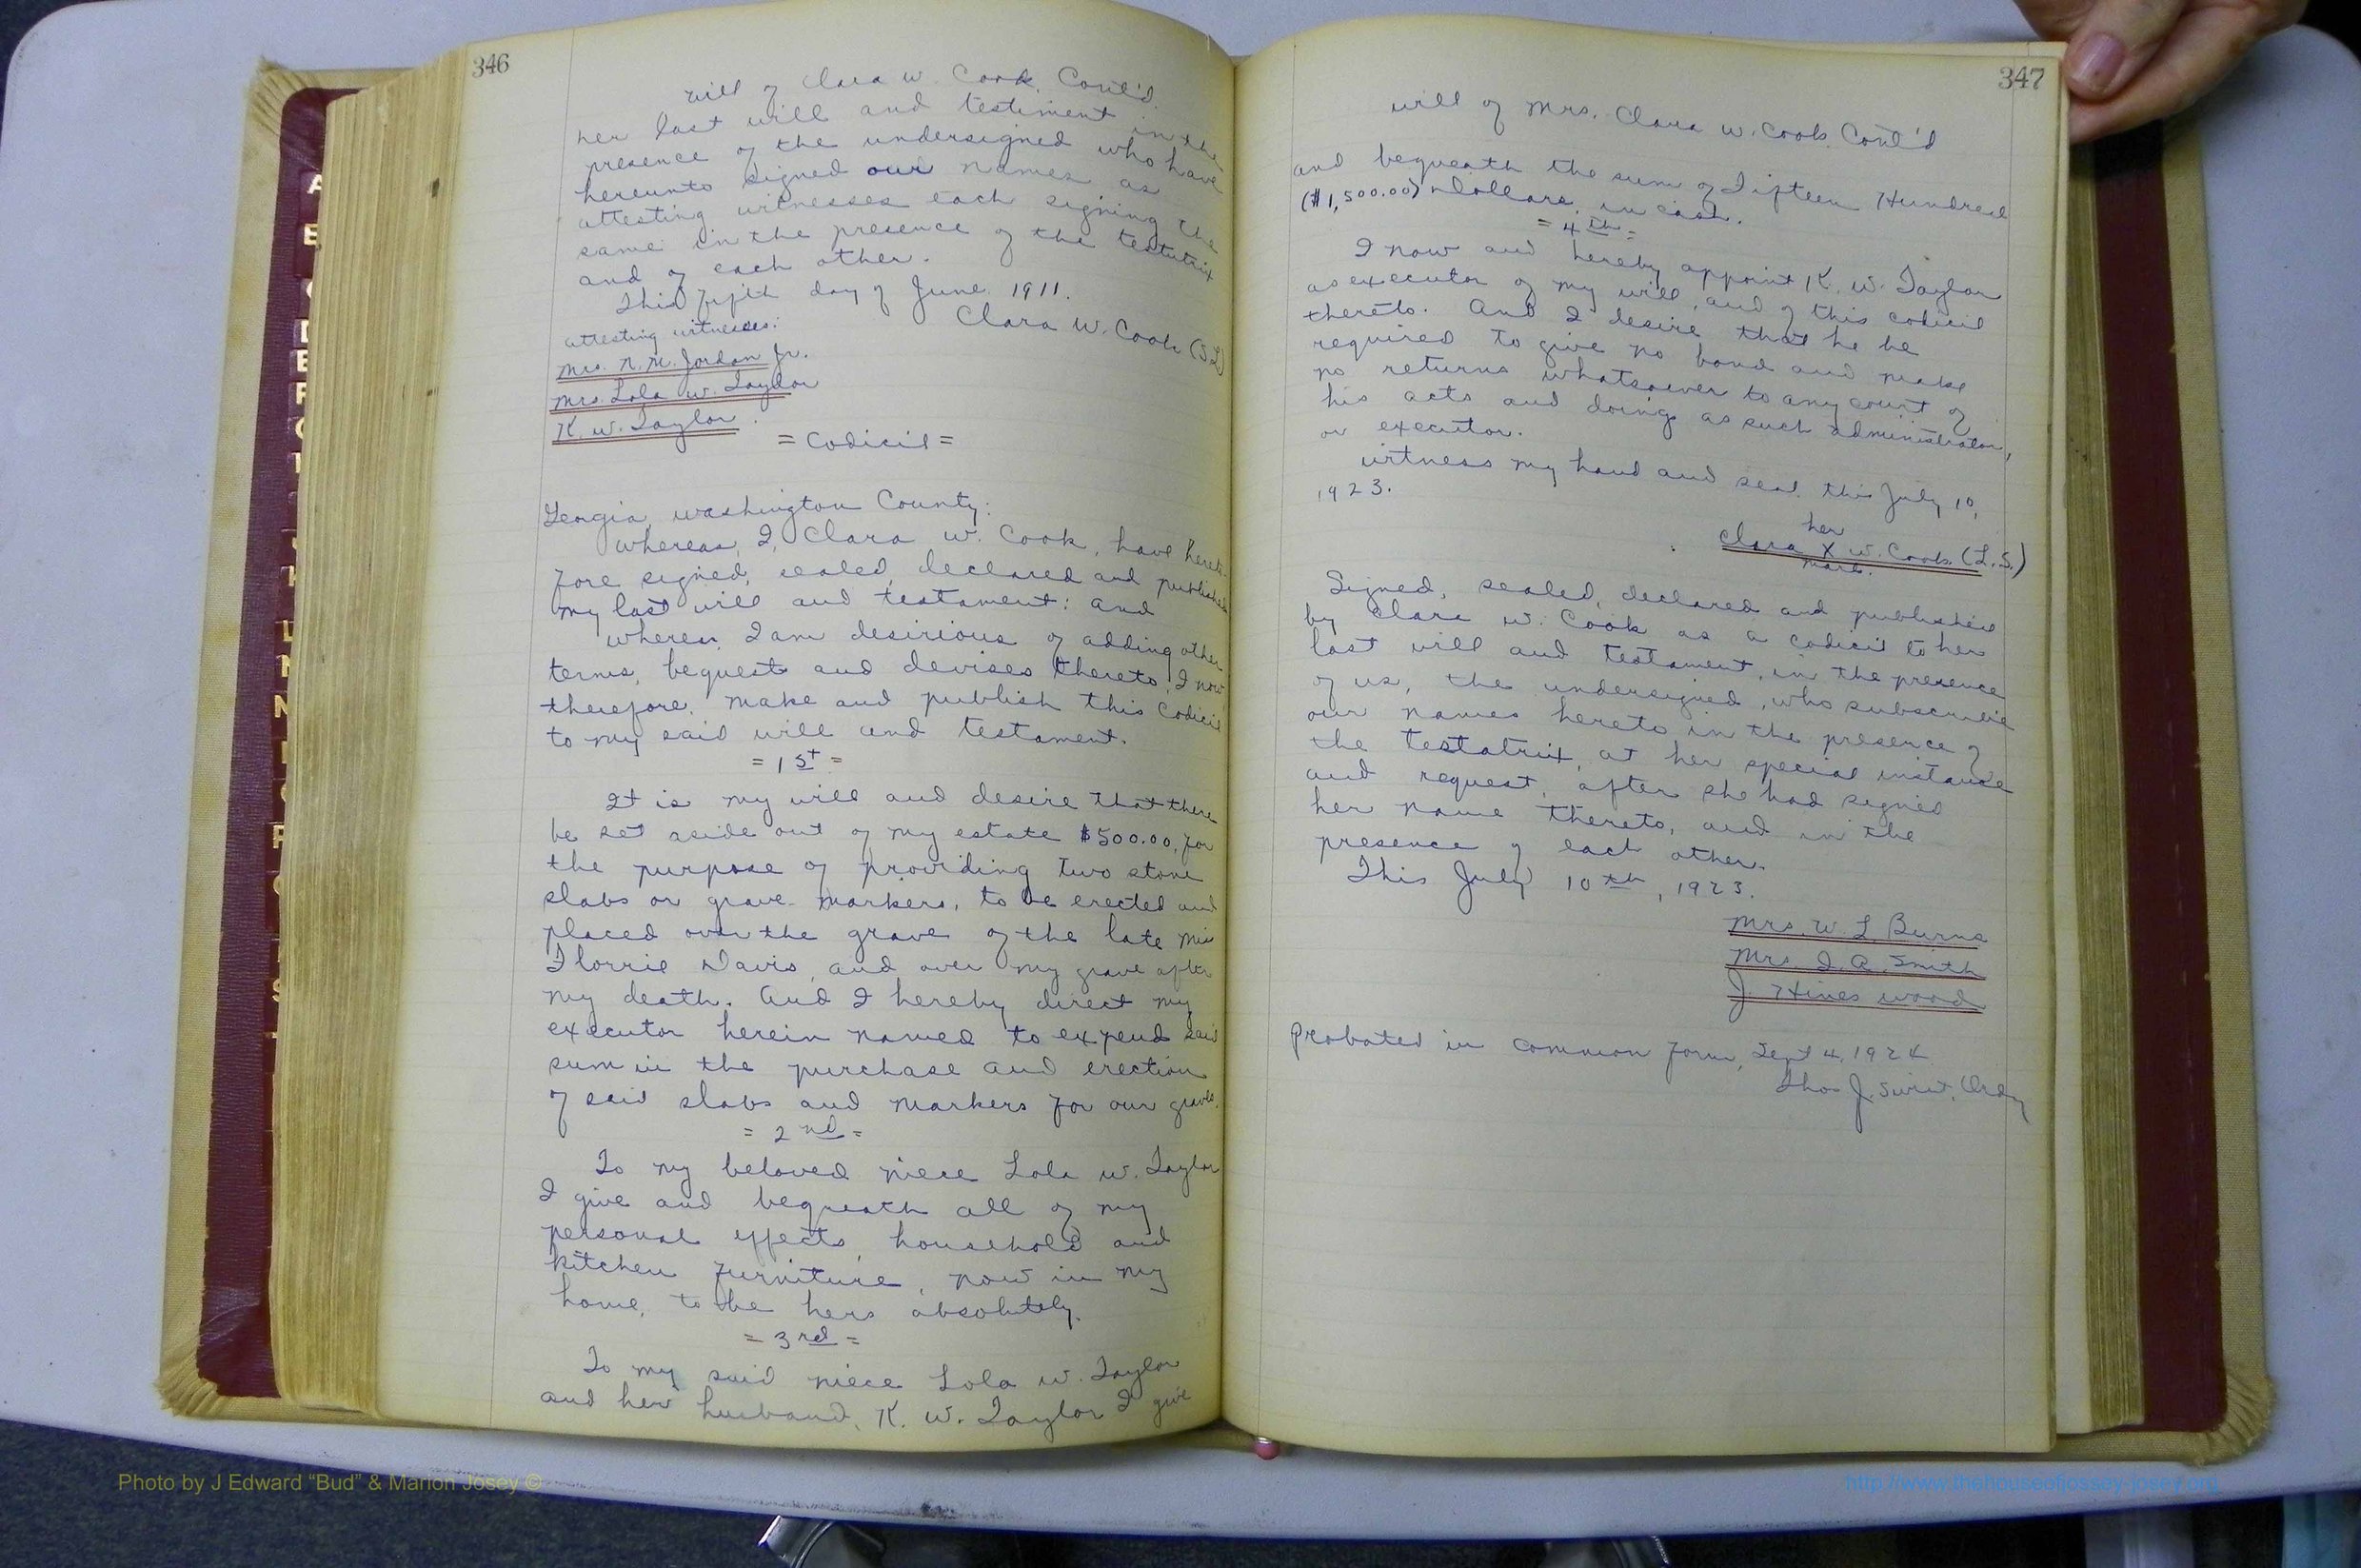 346
Will of Clara W. Cook. Cont'd.
her last will and testiment in the
presence of the undersigned who have
hereunto signed our names as
attesting witnesses each signing the
same in the presence of the testutrix
and of each other.
This fifth day of June 1911.
Clara W. Cook (S.L)
attesting witnesses:
Mrs. N. M. Jordan Jr.
Mrs. Lola W. Taylor
K. W. Taylor.
= Codicil =
Georgia, Washington County:
Whereas, I, Clara W. Cook, have hereto-
fore signed, sealed, declared and published
my last will and testament: and
Whereas, I am desirious of adding other
terms, bequests and devises thereto, I now
therefore, make and publish this Codicil
to my said will and testament.
= 1st =
It is my will and desire that there
be set aside out of my estate $500.00, for
the purpose of providing two stone
slabs or grave markers, to be erected and
placed over the grave of the late Miss
Florrie Davis, and over my grave after
my death. And I hereby direct my
executor herein named to expend said
sum in the purchase and erection
of said slabs and markers for our graves.
= 2nd =
To my beloved niece Lola W. Taylor
I give and bequeath all of my
personal effects, household and
kitchen furniture, now in my
home, to be hers absolutely.
= 3rd =
To my said niece Lola W. Taylor
and her husband, K. W. Taylor I give
347
Will of Mrs. Clara W. Cook. Cont'd
and bequeath the sum of Fifteen Hundred
($1,500.00) Dollars, in cash.
= 4th =
I now and hereby appoint K. W. Taylor
as executor of my will, and of this codicil
thereto. And I desire that he be
required to give no bond and make
no returns whatsoever to any court of
his acts and doings as such administrator,
or executor.
Witness my hand and seal this July 10,
1923.
her
Clara X W. Cook. (L.S.)
mark.
Signed, sealed, declared and published
by Clara W. Cook as a codicil to her
last will and testament, in the presence
of us, the undersigned, who subscribe
our names hereto in the presence of
the testatrix, at her special instance
and request, after she had signed
her name thereto, and in the
presence of each other.
This July 10th, 1923.
Mrs. W. L. Burns
Mrs. I. A. Smith
J. Hines Wood
Probated in common form, Sept 4, 1924
Thos J. Swint, Ordy
Photo by J Edward “Bud” & Marion Josey ©
http://www.thehouseofjossey-josey.org